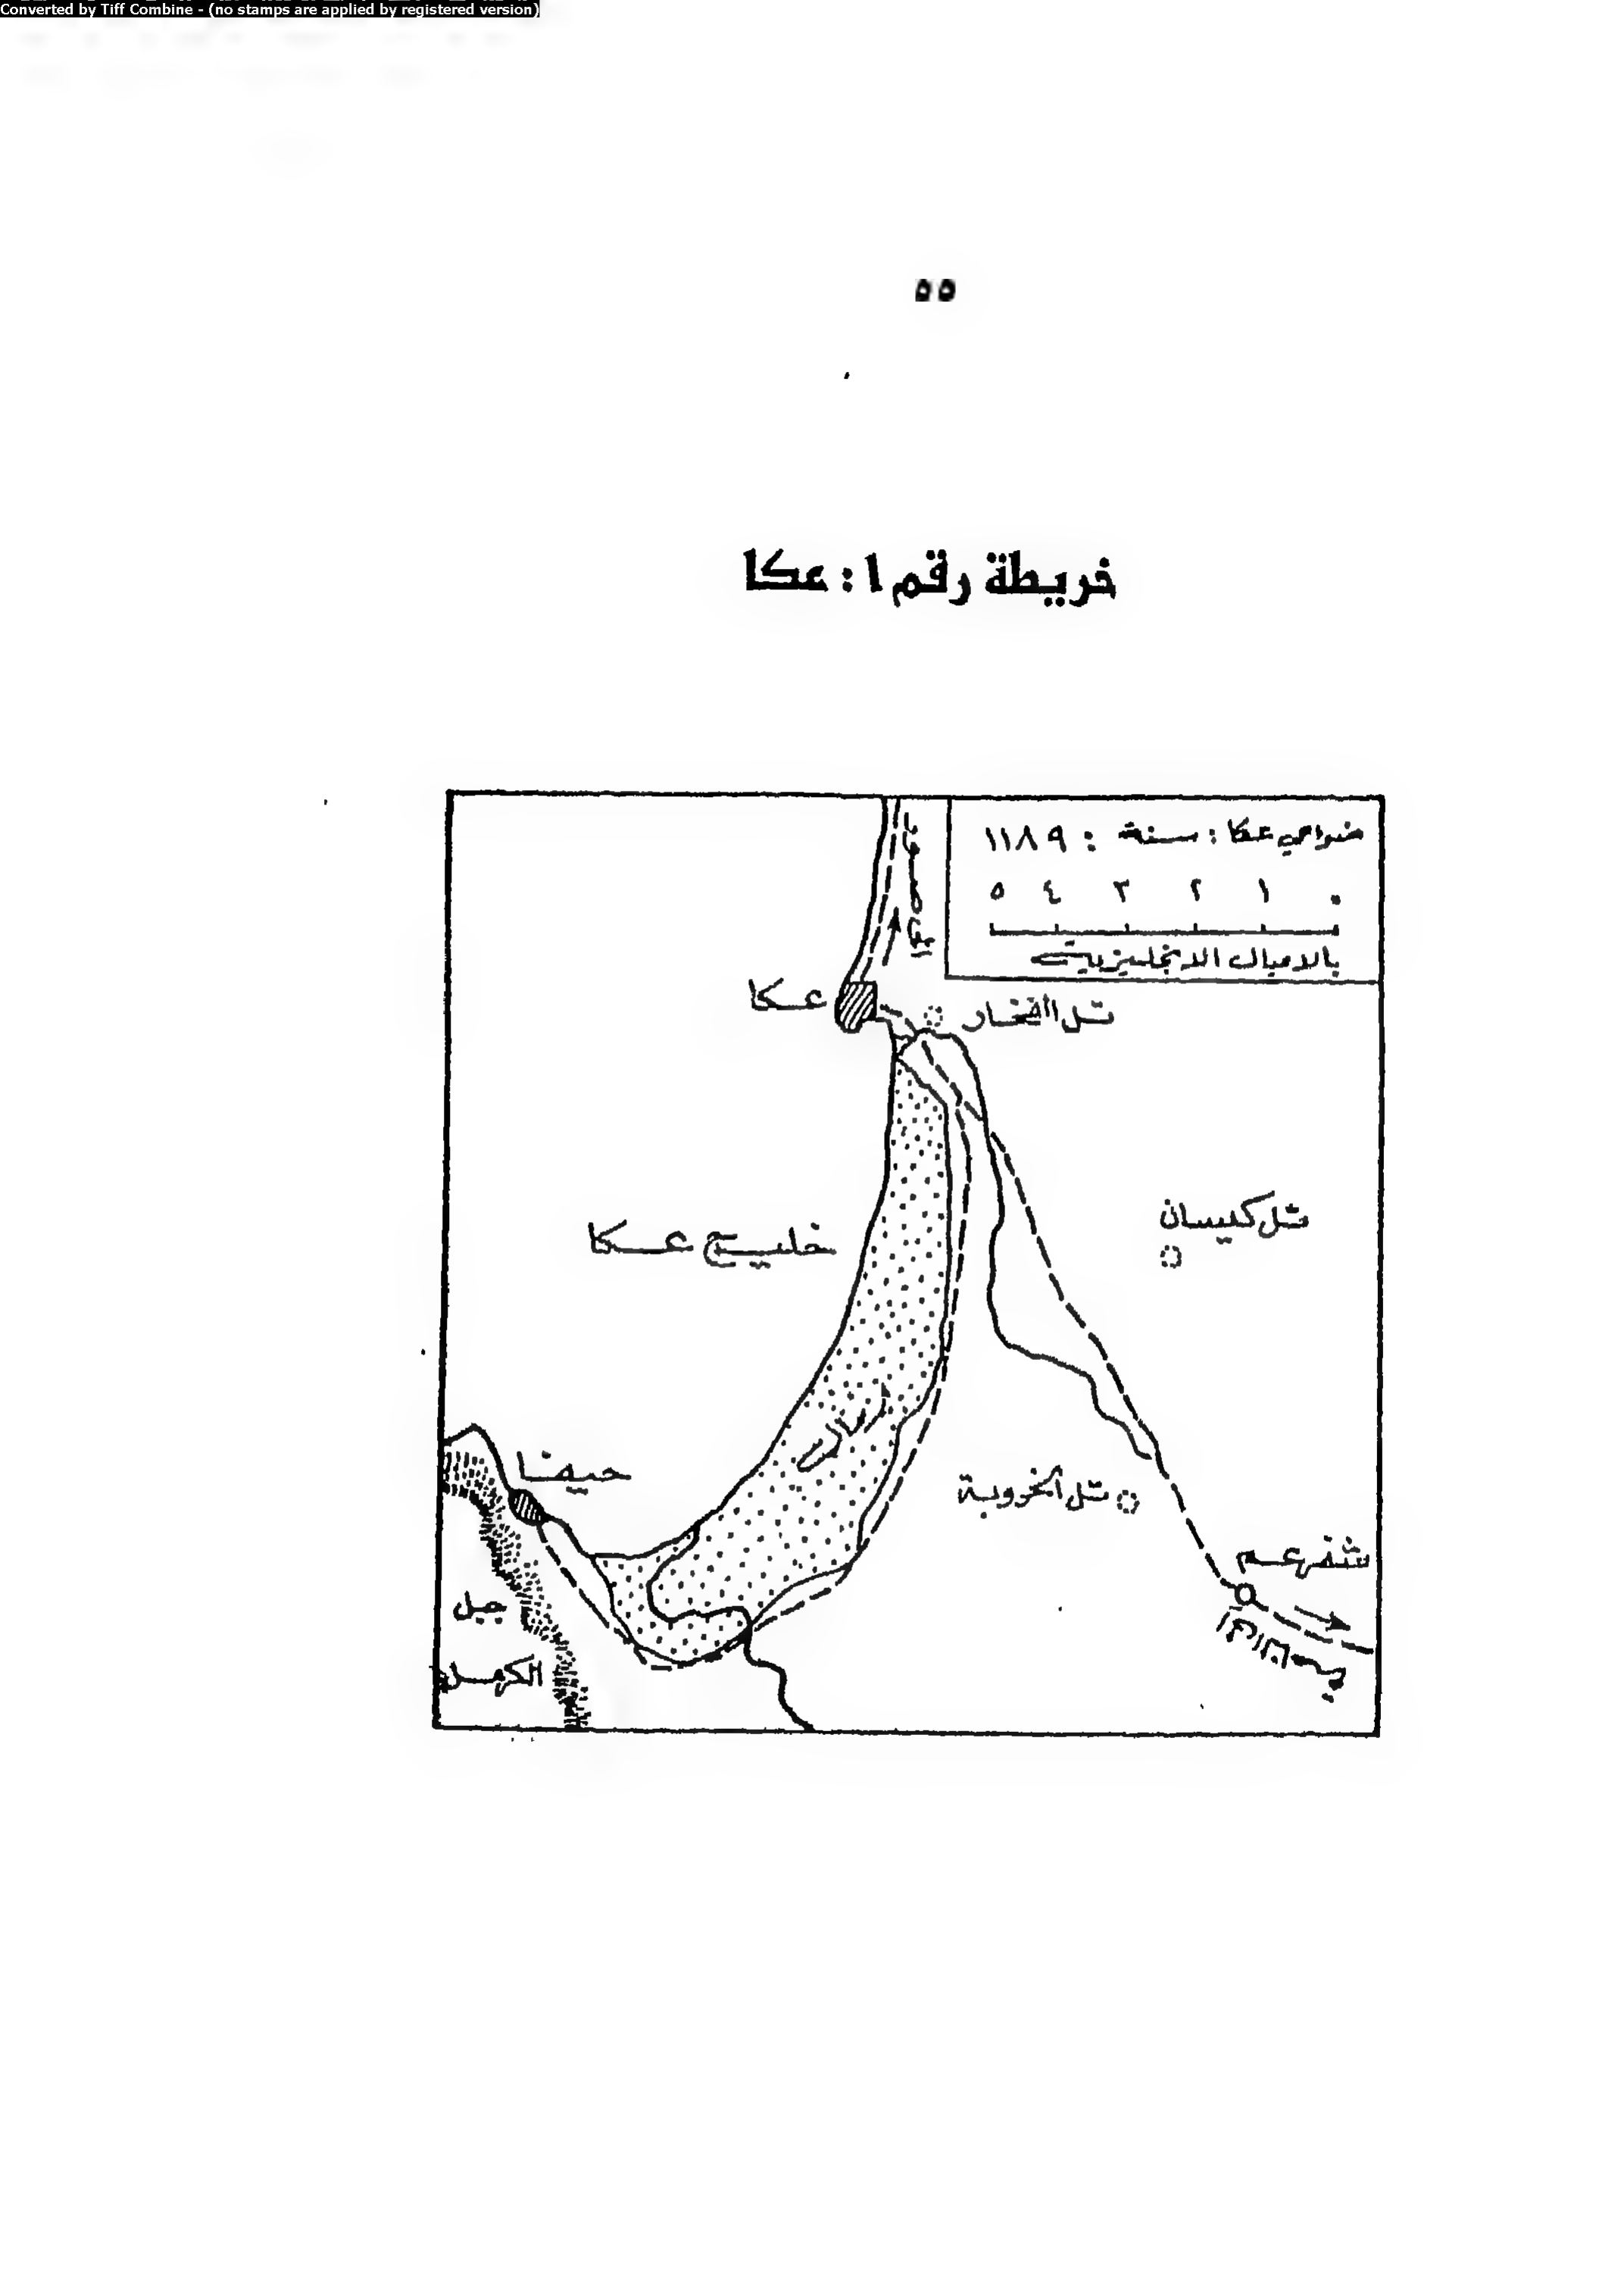 Converted by Tiff Combine - (no stamps are applied by registered version)
٥٥
خريطة رقم ١ : عكا
ضواحي عكا : سنة : ١١٨٩
٥ ٤ ٣ ٢ ١ ٠
بالاميال الانجليزية
عكا
تل الفخار
تل كيسان
خليج عكا
رمال
حيفا
تل الخروبة
شفرعم
جبل
الكرمل